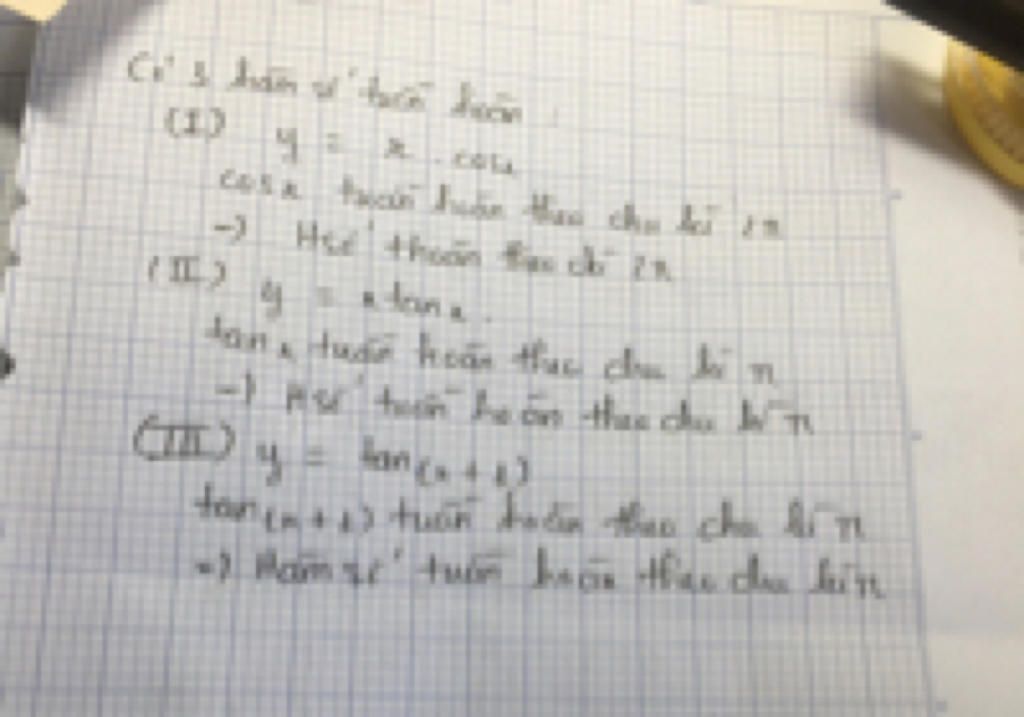 Có 3 hàm số tuần hoàn :
(I) y = x . cosx
cosx tuần hoàn theo chu kì 2π
=) Hsố tuần theo 2π
(II) y = x tanx .
tanx tuần hoàn theo chu kì π
=) Hsố tuần hoàn theo chu kì π
(III) y = tan(x + 1)
tan(x + 1) tuần hoàn theo chu kì π
=) Hàm số tuần hoàn theo chu kì π